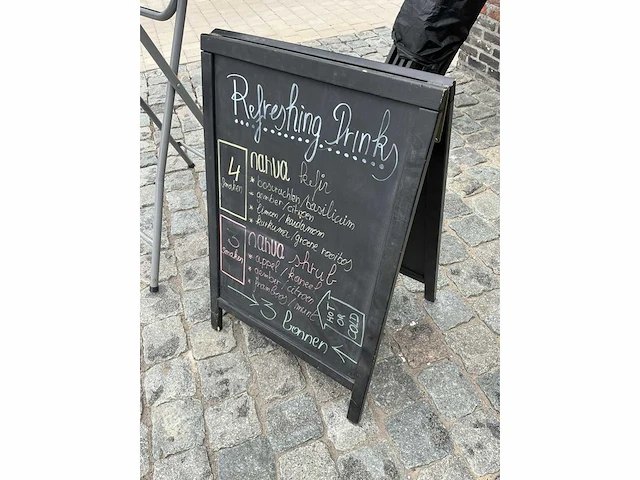 Refreshing Drinks
4 smaken
narva kefir
* bosvruchten/basilicum
* gember/citroen
* limoen/kardamom
* kurkuma/groene rooibos
3 smaken
narva shrub
* appel/kaneel
* gember/citroen
* framboos/munt
HOT OR COLD
3 bonnen